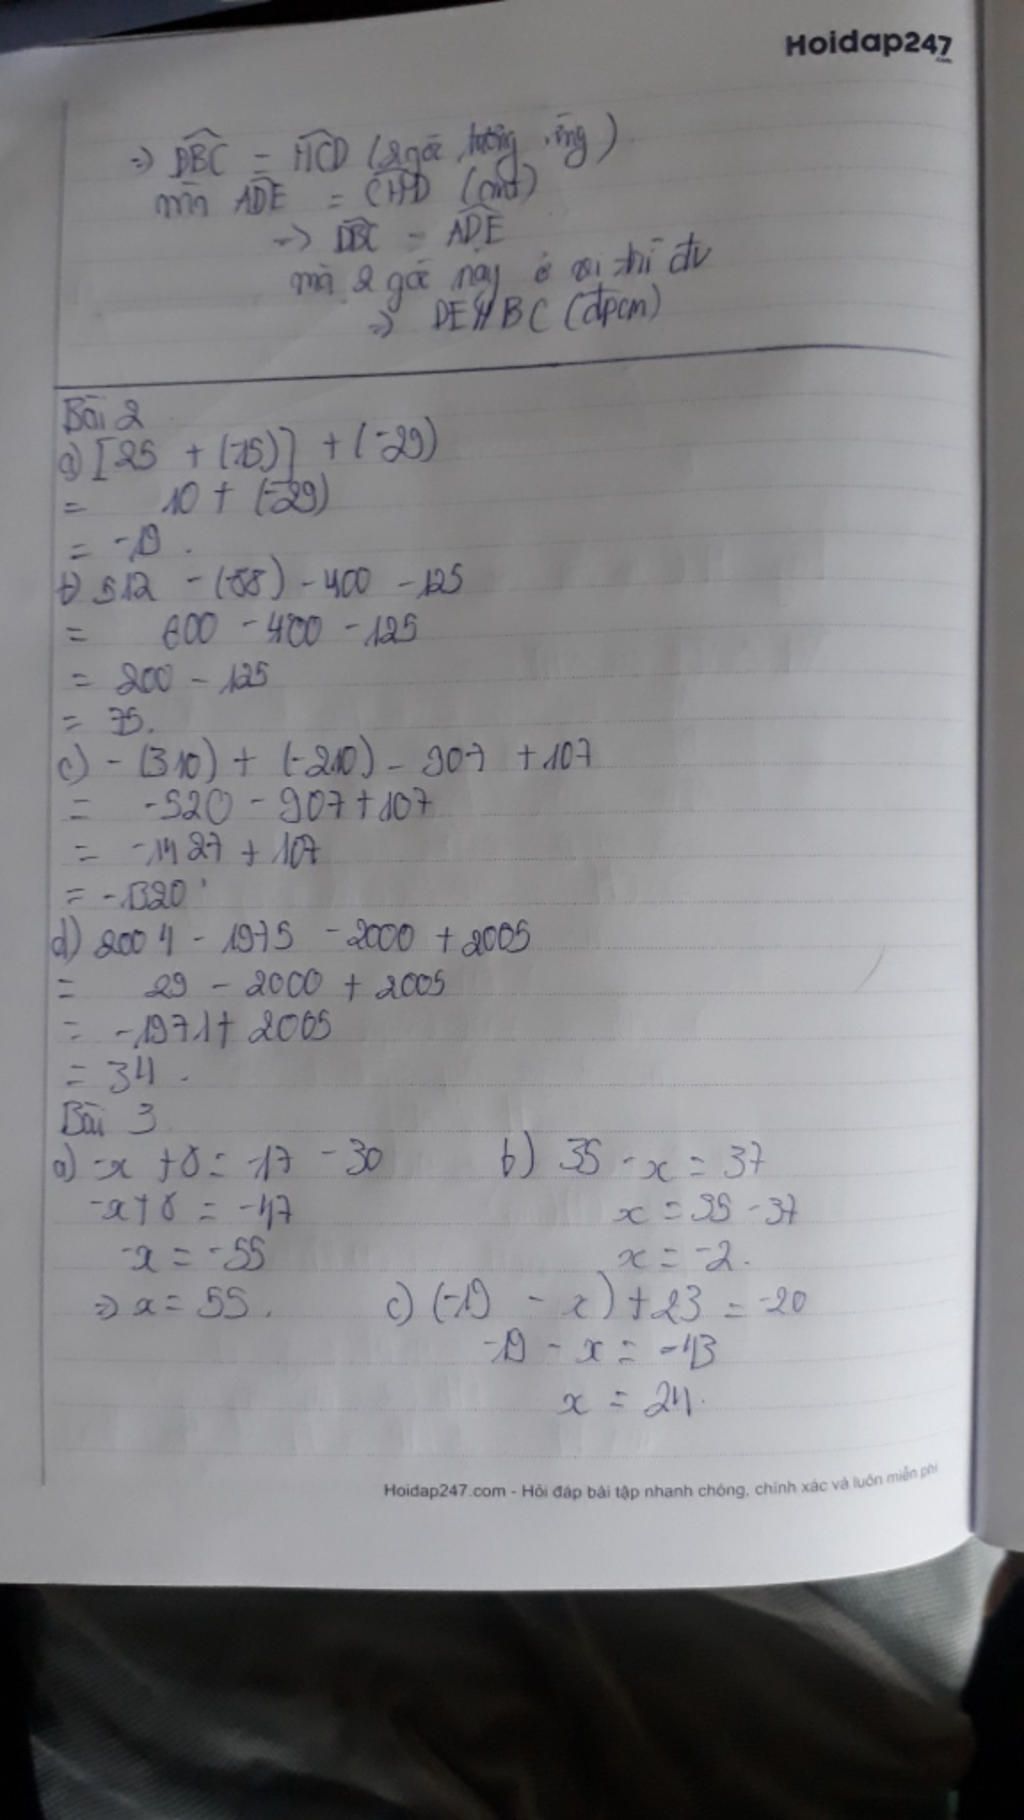 Hoidap247
.com
=> DBC = HCD (2 góc tương ứng)
mà ADE = CHD (cmt)
=> DBC = ADE
mà 2 góc này ở vị trí đv
=> DE//BC (đpcm)
Bài 2
a) [25 + (-15)] + (-29)
= 10 + (-29)
= -19.
b) 512 - (-88) - 400 - 125
= 600 - 400 - 125
= 200 - 125
= 75.
c) - (310) + (-210) - 907 + 107
= -520 - 907 + 107
= -1427 + 107
= -1320
d) 2004 - 1975 - 2000 + 2005
= 29 - 2000 + 2005
= -1971 + 2005
= 34.
Bài 3
a) -x + 8 = -17 - 30
-x + 8 = -47
-x = -55
=> x = 55.
b) 35 - x = 37
x = 35 - 37
x = -2.
c) (-19 - x) + 23 = -20
-19 - x = -43
x = 24.
Hoidap247.com - Hỏi đáp bài tập nhanh chóng, chính xác và luôn miễn phí